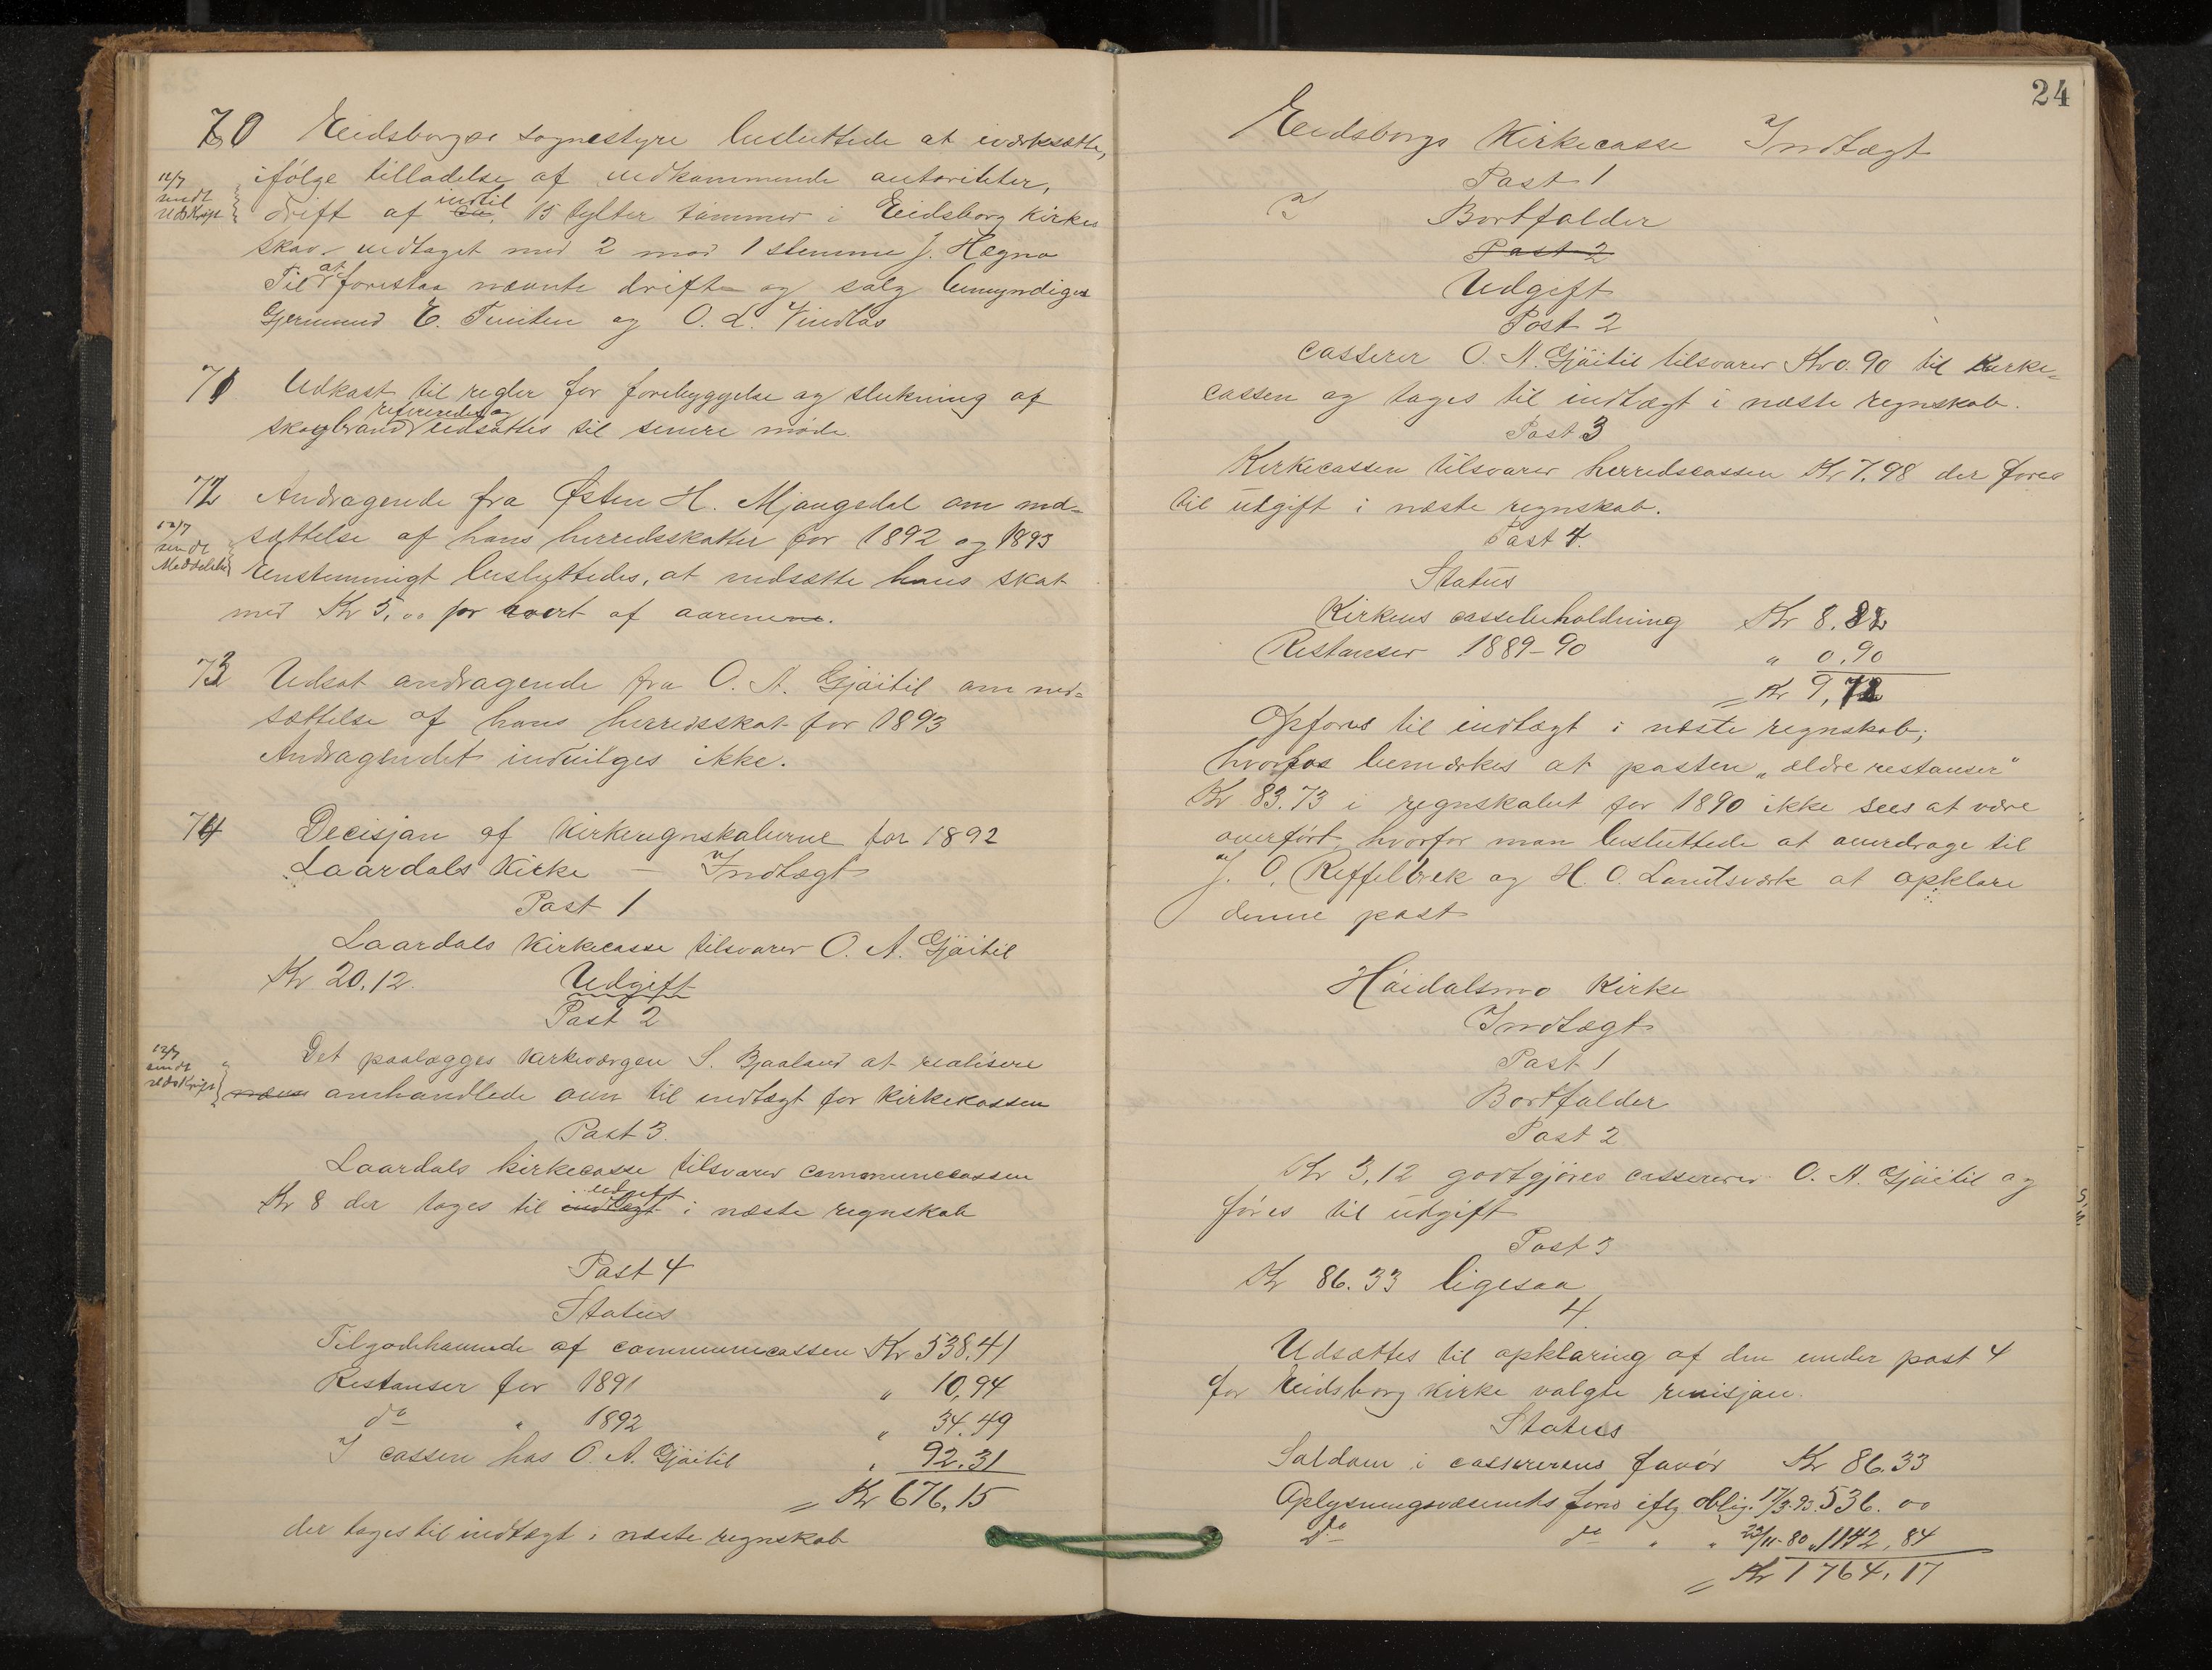 70 Eidsborgs sognestyre besluttede at iværksætte,
12/7 sendt udskrift
ifølge tilladelse af vedkommende autoriteter,
indtil
drift af ca. 15 tylter tømmer i Eidsborg kirkes
skov. vedtaget med 2 mod 1 stemme J. Hægna
Til at forestaa nævnte drift og salg bemyndiges
Gjermund E. Tveiten og O. L. Vindlås
71 Udkast til regler for forebyggelse og slukning af
refereredes og
skogbrand udsattes til senere møde.
72 Andragende fra Østen H. Mjaugedal om ned-
12/7 sendt Meddelelse
sættelse af hans herredsskatter for 1892 og 1893
Enstemmigt besluttedes, at nedsætte hans skat
med Kr 5,00 for hvert af aarene.
73 Udsat andragende fra O. A. Gjøitil om ned-
sættelse af hans herredsskat for 1893
Andragendet indvilges ikke.
74 Decisjon af Kirkeregnskaberne for 1892
Laardals Kirke – Indtægt
Post 1
Laardals Kirkecasse tilsvarer O. A. Gjøitil
Kr 20.12.
Udgift
Post 2
12/7 sendt udskrift
Det paalægges Kirkeværgen S. Bjaaland at realisere
omhandlede ovn til indtægt for Kirkekassen
Post 3.
Laardals kirkecasse tilsvarer communecassen
udgift
Kr 8 der tages til indtægt i næste regnskab
Post 4
Status
Tilgodehavende af communecassen Kr 538.41
Restanser for 1891 " 10,94
do " 1892 " 34.49
I cassen hos O. A. Gjøitil " 92.31
= Kr 676,15
der tages til indtægt i næste regnskab
24
Eidsborgs Kirkecasse Indtægt
Post 1
Bortfalder
Post 2
Udgift
Post 2
casserer O. A. Gjøitil tilsvarer Kr 0.90 til Kirke-
cassen og tages til indtægt i næste regnskab.
Post 3
Kirkecassen tilsvarer herredscassen Kr 7.98 der føres
til udgift i næste regnskab.
Post 4.
Status
Kirkens cassebeholdning Kr 8.82
Restanser 1889–90 " 0.90
= Kr 9,72
Opføres til indtægt i næste regnskab;
hvorhos bemærkes at posten „ældre restanser"
Kr 83.73 i regnskabet for 1890 ikke sees at være
overført, hvorfor man besluttede at overdrage til
J. O. Reffelbæk og H. O. Landsværk at opklare
denne post
Høidalsmo Kirke
Indtægt
Post 1
Bortfalder
Post 2
Kr 3,12 godtgjøres cassereren O. A. Gjøitil og
føres til udgift
Post 3
Kr 86.33 ligesaa
4.
Udsættes til opklaring af den under post 4
for Eidsborg Kirke valgte revisjon.
Status
Saldoen i cassererens favør Kr 86.33
Oplysningsvæsenets fond iflg. oblig. 17/3. 93. 536.00
do do " " 22/11-80 „ 1142,84
= Kr 1764,17